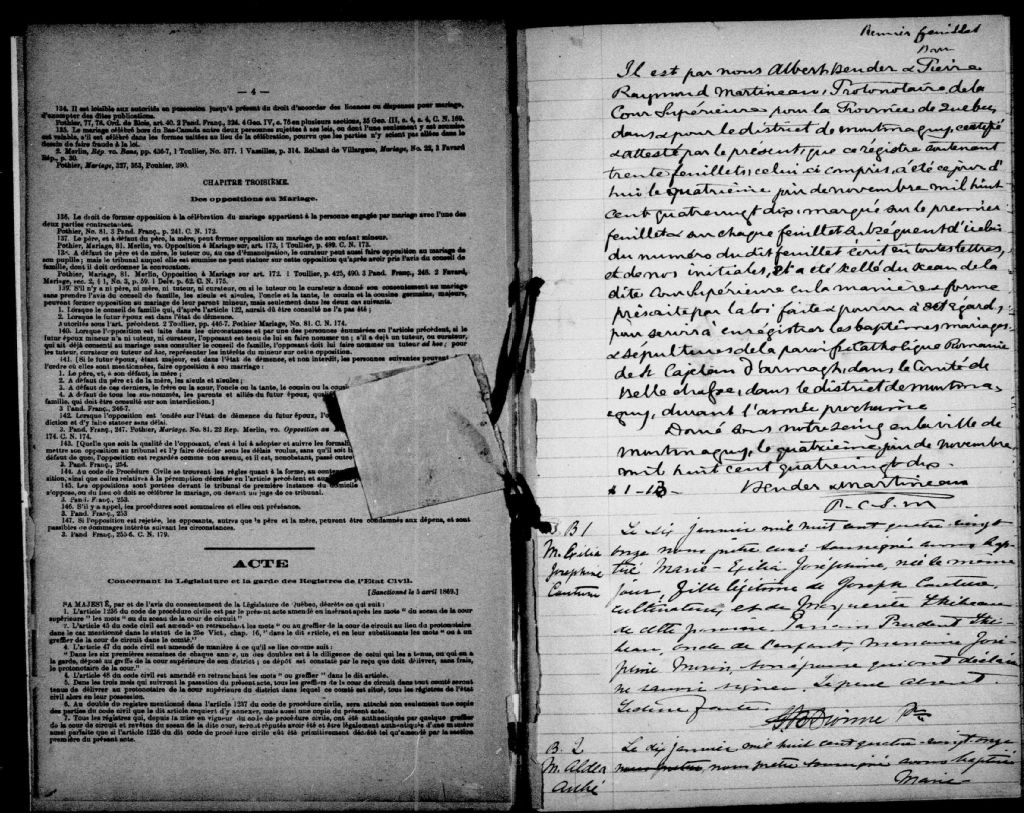 — 4 —
134. Il est loisible aux autorités en possession jusqu'à présent du droit d'accorder des licences ou dispenses pour mariage,
d'exempter des dites publications.
Pothier, 77, 78. Ord. de Blois, art. 40. 2 Pand. Franç., 324. 4 Geo. IV, c. 76 en plusieurs sections, 35 Geo. III, c. 4, s. 4, C. N. 169.
135. Le mariage célébré hors du Bas-Canada entre deux personnes sujettes à ses lois, ou dont l'une seulement y est soumise
est valable, s'il est célébré dans les formes usitées au lieu de la célébration, pourvu que les parties n'y soient pas allées dans le
dessein de faire fraude à la loi.
2. Merlin, Rép. vo. Bans, pp. 436-7, 1 Toullier, No. 577. 1 Vazeilles, p. 314. Rolland de Villargues, Mariage, No. 23, 3 Favard
Rép., p. 30.
Pothier, Mariage, 327, 363, Pouhier, 390.
CHAPITRE TROISIÈME.
Des oppositions au Mariage.
136. Le droit de former opposition à la célébration du mariage appartient à la personne engagée par mariage avec l'une des
deux parties contractantes.
Pothier, No. 81. 3 Pand. Franç., p. 241. C. N. 172.
137. Le père, et à défaut du père, la mère, peut former opposition au mariage de son enfant mineur.
Pothier, Mariage, 81. Merlin, vo. Opposition à Mariage sur art. 173, 1 Toullier, p. 489. C. N. 173.
138. A défaut de père et de mère, le tuteur ou, au cas d'émancipation, le curateur peut aussi faire opposition au mariage de
son pupille ; mais le tribunal auquel elle est soumise ne peut statuer sur cette opposition qu'après avoir pris l'avis du conseil de
famille, dont il doit ordonner la convocation.
Pothier, Mariage, 81. Merlin, Opposition à Mariage sur art. 172. 1 Toullier, p. 425, 490. 3 Pand. Franç., 246. 2 Favard,
Mariage, sec. 2, § 1, No. 3, p. 59. 1 Delv. p. 62. C. N. 175.
139. S'il n'y a ni père, ni mère, ni tuteur, ni curateur, ou si le tuteur ou la curateur a donné son consentement au mariage
sans prendre l'avis du conseil de famille, les aïeuls et aïeules, l'oncle et la tante, le cousin et la cousine germains, majeurs,
peuvent former opposition au mariage de leur parent mineur, mais seulement dans les deux cas suivants.
1. Lorsque le conseil de famille qui, d'après l'article 122, aurait dû être consulté ne l'a pas été ;
2. Lorsque le futur époux est dans l'état de démence.
Autorités sous l'art. précédent. 2 Toullier, pp. 446-7. Pothier Mariage, No. 81. C. N. 174.
140. Lorsque l'opposition est faite dans les circonstances et par une des personnes énumérées en l'article précédent, si le
futur époux mineur n'a ni tuteur, ni curateur, l'opposant est tenu de lui en faire nommer un ; s'il a déjà un tuteur, ou curateur,
qui ait déjà consenti au mariage sans consulter le conseil de famille, l'opposant doit lui faire nommer un tuteur ad hoc ; pour
les tuteur, curateur ou tuteur ad hoc, représenter les intérêts du mineur sur cette opposition.
141. [Si le futur époux, étant majeur, est dans l'état de démence, et non interdit, les personnes suivantes peuvent
l'ordre où elles sont mentionnées, faire opposition à son mariage :
1. Le père, et, à son défaut, la mère ;
2. A défaut du père et de la mère, les aïeuls et aïeules ;
3. A défaut de ces derniers, le frère ou la sœur, l'oncle ou la tante, le cousin ou la cousine
4. A défaut de tous les sus-nommés, les parents et alliés du futur époux,
famille, qui doit être consulté sur son interdiction.]
3 Pand. Franç., 246-7.
142. Lorsque l'opposition est fondée sur l'état de démence du futur époux, l'
diction et d'y faire statuer sans délai.
3. Pand. Franç., 247. Pothier, Mariage, No. 81. 23 Rep. Merlin, vo. Opposition au
174. C. N. 174.
143. [Quelle que soit la qualité de l'opposant, c'est à lui à adopter et suivre les formali
mettre son opposition au tribunal et l'y faire décider sous les délais voulus, sans qu'il soit
défaut de quoi, l'opposition est regardée comme non avenue, et il est, nonobstant, passé outre
3. Pand. Franç., 254.
144. Au code de Procédure Civile se trouvent les règles quant à la forme, au conten
sition, ainsi que celles relatives à la péremption décrétée en l'article précédent et aux
145. Les oppositions sont portées devant le tribunal de première instance du domicile
s'oppose, ou du lieu où doit se célébrer le mariage, ou devant un juge de ce tribunal.
3. Pand. Franç., 253.
146. S'il y a appel, les procédures sont sommaires et elles ont préséance.
3. Pand. Franç., 253
147. Si l'opposition est rejetée, les opposants, autres que le père et la mère, peuvent être condamnés aux dépens, et sont
passibles de dommages intérêts suivant les circonstances.
3. Pand Franç., 255-6. C. N. 179.
ACTE
Concernant la Législature et la garde des Registres de l'Etat Civil.
[Sanctionné le 5 avril 1869.]
SA MAJESTÉ, par et de l'avis du consentement de la Législature de Québec, décrète ce qui suit :
1. L'article 1236 du code de procédure civile est par le présent acte amendé en insérant après les mots “ du sceau de la cour
supérieure ” les mots “ ou du sceau de la cour de circuit ”.
2. L'article 45 du code civil est amendé en retranchant les mots “ ou au greffier de la cour de circuit au lieu du protonotaire
dans le cas mentionné dans le statut de la 25e Vict., chap. 16, ” dans le dit article, et en leur substituants les mots “ ou à un
greffier de la cour de circuit dans le comté.”
4. L'article 47 du code civil est amendé de manière à ce qu'il se lise comme suit :
“ Dans les six premières semaines de chaque année, un des doubles est à la diligence de celui qui les a tenus, ou qui en a
la garde, déposé au greffe de la cour supérieure de son district ; ce dépôt est constaté par le reçu que doit délivrer, sans frais,
le protonotaire de la cour.”
4. L'article 48 du code civil est amendé en retranchant les mots “ ou greffier ” dans le dit article.
5. Dans les trois mois qui suivront la passation du présent acte, tous les greffiers de la cour de circuit dans tout comté seront
tenus de délivrer au protonotaire de la cour supérieure du district dans lequel ce comté est situé, tous les régistres de l'état
civil alors en leur possession.
6. Au double du registre mentionné dans l'article 1237 du code de procédure civile, sera attaché non seulement une copie
des parties du code civil que le dit article requiert d'y annexer, mais aussi une copie du présent acte.
7. Tous les régistres qui, depuis la mise en vigueur du code de procédure civile, ont été authentiqués par quelque greffier
de la cour de circuit et revêtus du sceau de la dite cour, seront réputés avoir été et être légalement authentiqués d'une manière
aussi parfaite que si l'article 1236 du dit code de procédure civile eût été primitivement décrété tel qu'amendé par la section
première du présent acte.
Premier feuillet
Il est par nous Albert Bender & Pierre
Raymond Martineau, Protonotaire de la
Cour Supérieure pour la Province de Quebec,
dans & pour le district de Montmagny, certifié
& attesté par le présent, que ce régistre contenant
trente feuillets, celui-ci compris, a été ce jour d'
hui le quatrième jour de novembre mil huit
cent quatrevingt dix, marqué sur le premier
feuillet & sur chaque feuillet subséquent d'icelui
du numéro du dit feuillet écrit en toutes lettres,
et de nos initiales, et a été scellé du sceau de la
dite Cour Supérieure en la manière & forme
préscrite par la loi faite & pourvue à cet égard,
pour servir à enrégistrer les baptêmes, mariages
& sépultures de la paroisse Catholique Romaine
de St Cajetan d'Armagh, dans le Comté de
Bellechasse, dans le district de Montma-
gny, durant l'année prochaine
Donné sous notre seing en la ville de
Montmagny, le quatrième jour de novembre
mil huit cent quatrevingt dix.
Bender & Martineau
P. C. S. M
B 1
M. Exilia
Josephine
Couture
Le dix janvier mil huit cent quatre-vingt
onze nous prêtre curé soussigné avons bap-
tisé Marie-Exilia Joséphine, née le même
jour, fille légitime de Joseph Couture
cultivateur, et de Marguerite Thibeau
de cette paroisse. Parrain Prudent Thi-
beau, oncle de l'enfant, marraine José-
phine Morin, son épouse qui ont déclaré
ne savoir signer. Le père absent
Lecture faite.
Dionne Ptre
B. 2
M. Alder
Le dix janvier mil huit cent quatre-vingt onze
nous prêtre, nous prêtre soussigné avons baptisé
Marie